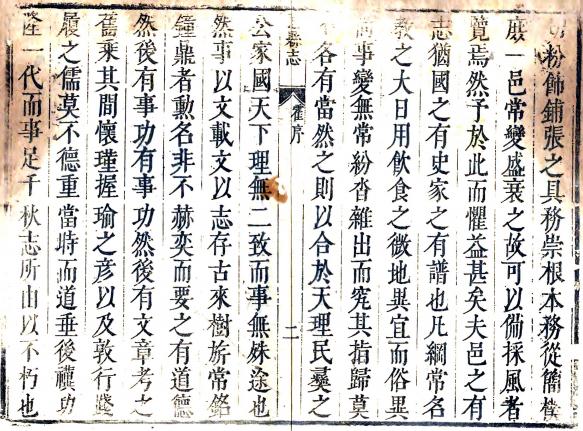 粉飾鋪張之具務崇根本務從簡樸
庶一邑常變盛衰之故可以俻採風者
覽焉然予於此而懼益甚矣夫邑之有
志猶國之有史家之有譜也凡綱常名
教之大日用飲食之微地異宜而俗異
尚事變無常紛沓雜出而究其指歸莫
不各有當然之則以合於天理民彝之
縣志
霍序
二
公家國天下理無二致而事無殊途也
然事以文載文以志存古來樹旂常銘
鐘鼎者勲名非不赫奕而要之有道德
然後有事功有事功然後有文章考之
舊乘其間懷瑾握瑜之彥以及敦行踐
履之儒莫不德重當時而道垂後禩功
隆一代而事足千秋志所由以不朽也